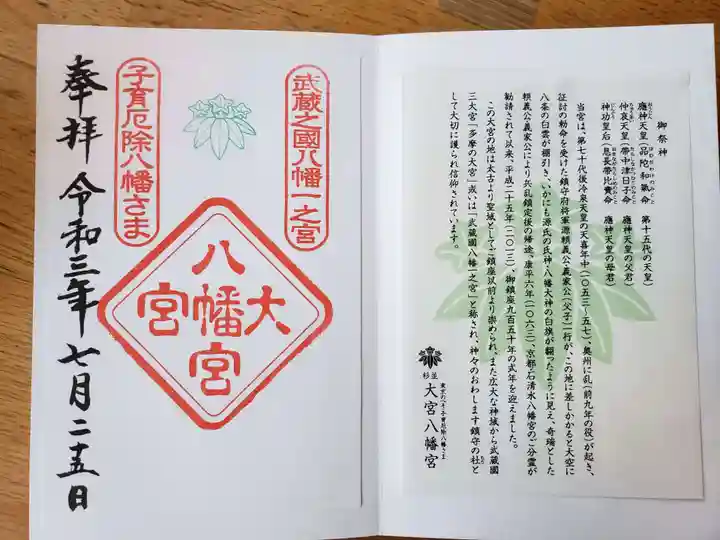 御祭神
應神天皇(品陀和氣命) 第十五代の天皇
仲哀天皇(帯中津日子命) 應神天皇の父君
神功皇后(息長帯比賣命) 應神天皇の母君
当宮は、第七十代後冷泉天皇の天喜年中(一〇五三~五七)、奥州に乱(前九年の役)が起き、
征討の勅命を受けた鎮守府将軍源頼義公義家公(父子)一行が、この地に差しかかると大空に
八条の白雲が棚引き、いかにも源氏の氏神・八幡大神の白旗が翻ったように見え、奇瑞とした
頼義公義家公により兵乱鎮定後の帰途、康平六年(一〇六三)、京都石清水八幡宮のご分霊が
勧請されて以来、平成二十五年(二〇一三)、御鎮座九百五十年の式年を迎えました。
この大宮の地は太古より聖域としてご鎮座以前より崇められ、また広大な神域から武蔵國
三大宮「多摩の大宮」或いは「武蔵國八幡一之宮」と称され、神々のおわします鎮守の社と
して大切に護られ信仰されています。
杉並
東京のへそ子育厄除八幡さま
大宮八幡宮
武蔵之國八幡一之宮
大宮
八幡宮
子育厄除八幡さま
奉拝 令和三年七月二十五日